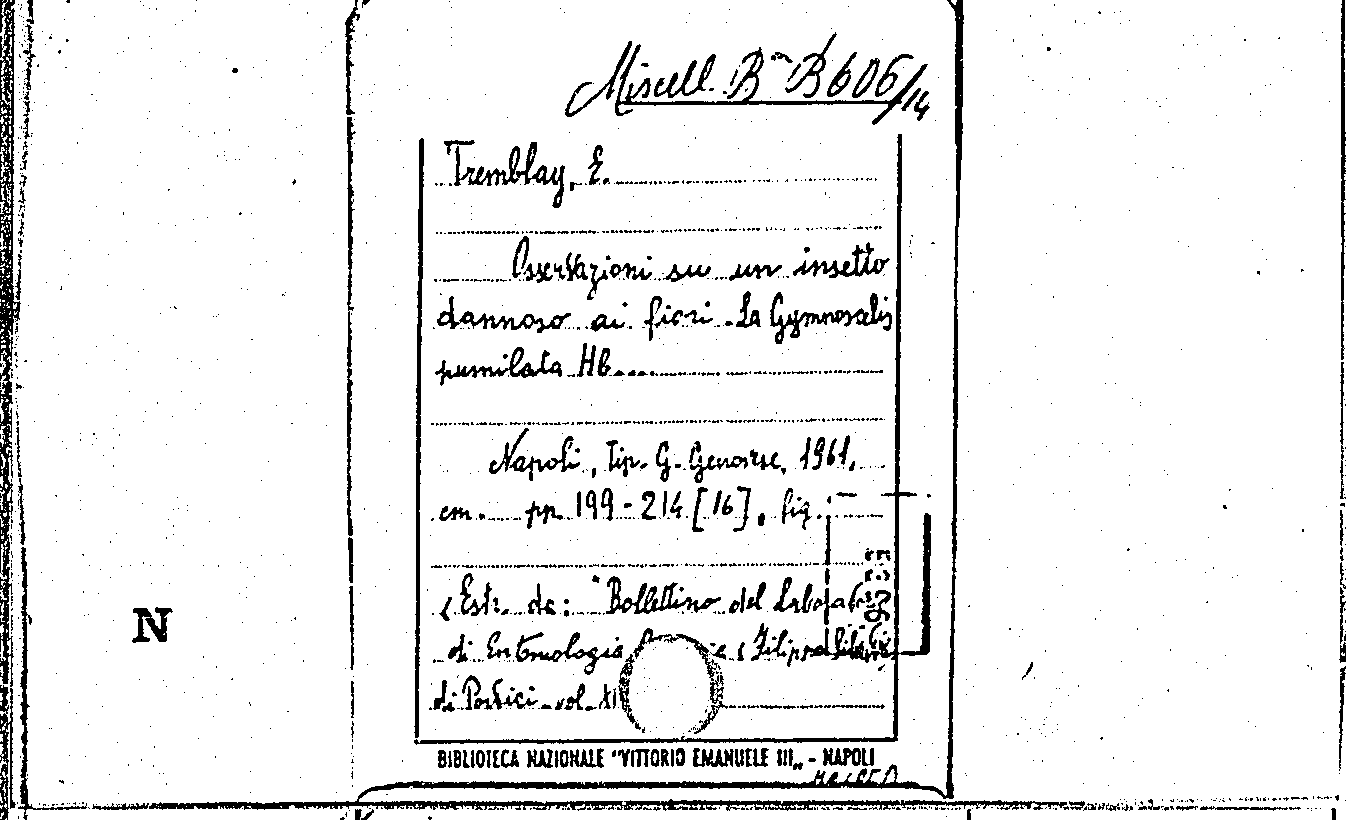 Miscell. Bª B 606/14
Tremblay, E.
Osservazioni su un insetto
dannoso ai fiori. La Gymnoscelis
pumilata Hb....
Napoli, Tip. G. Genovese, 1961.
cm. pp. 199-214 [16], fig.
(Estr. da: "Bollettino del Laborat.
di Entomologia (Filippo Silvestri)
di Portici. vol. XI
N
BIBLIOTECA NAZIONALE "VITTORIO EMANUELE III„ - NAPOLI